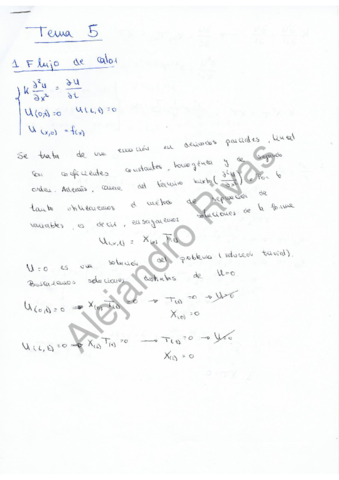 Tema 5
1 Flujo de calor
k ∂²u/∂x² = ∂u/∂t
u(0,t)=0 u(L,t)=0
u(x,0) = f(x)
Se trata de una ecuación en derivadas parciales, lineal
con coeficientes constantes, homogénea y de segundo
orden. Además, carece del término mixto (
tanto utilizaremos el método de separación de
variables, es decir, ensayamos soluciones de la forma
U(x,t) = X(x) T(t)
U=0 es una solución del problema (solución trivial).
Buscaremos soluciones distintas de U=0
U(0,t)=0 → X(0) T(t)=0 → T(t)=0 → U=0
X(0)=0
U(L,t)=0 → X(L) T(t)=0 → T(t)=0 → U=0
X(L)=0
Alejandro Rivas